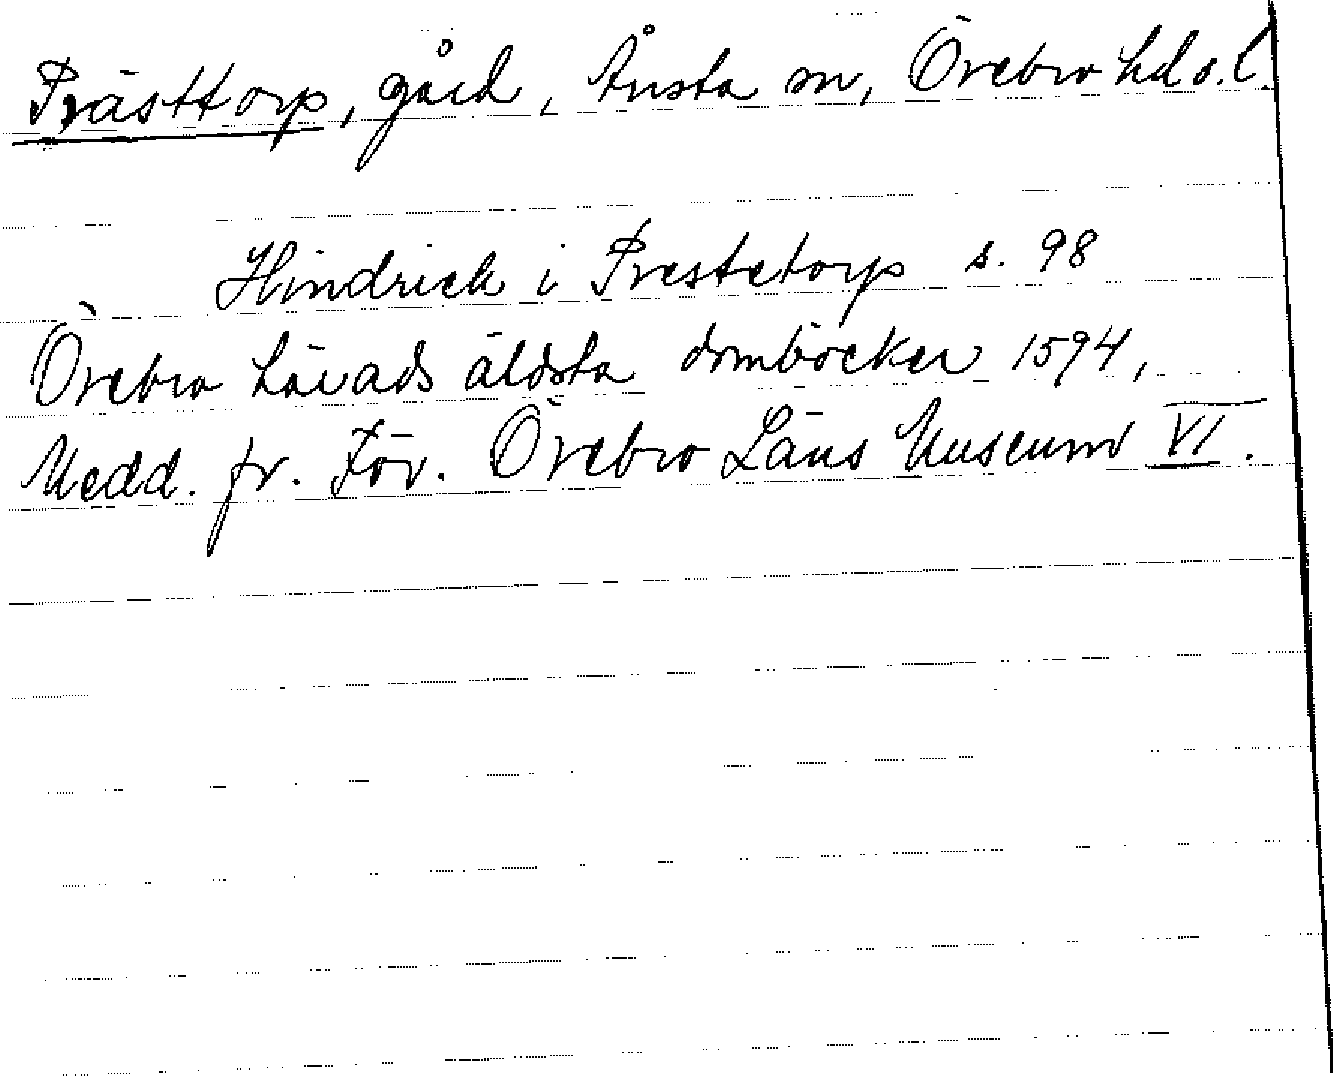 Prästtorp, gård, Ånsta sn, Örebro hd o. l.
Hindrick i Prestetorp s. 98
Örebro härads äldsta domböcker 1594,
Medd. fr. För. Örebro Läns Museum VI.